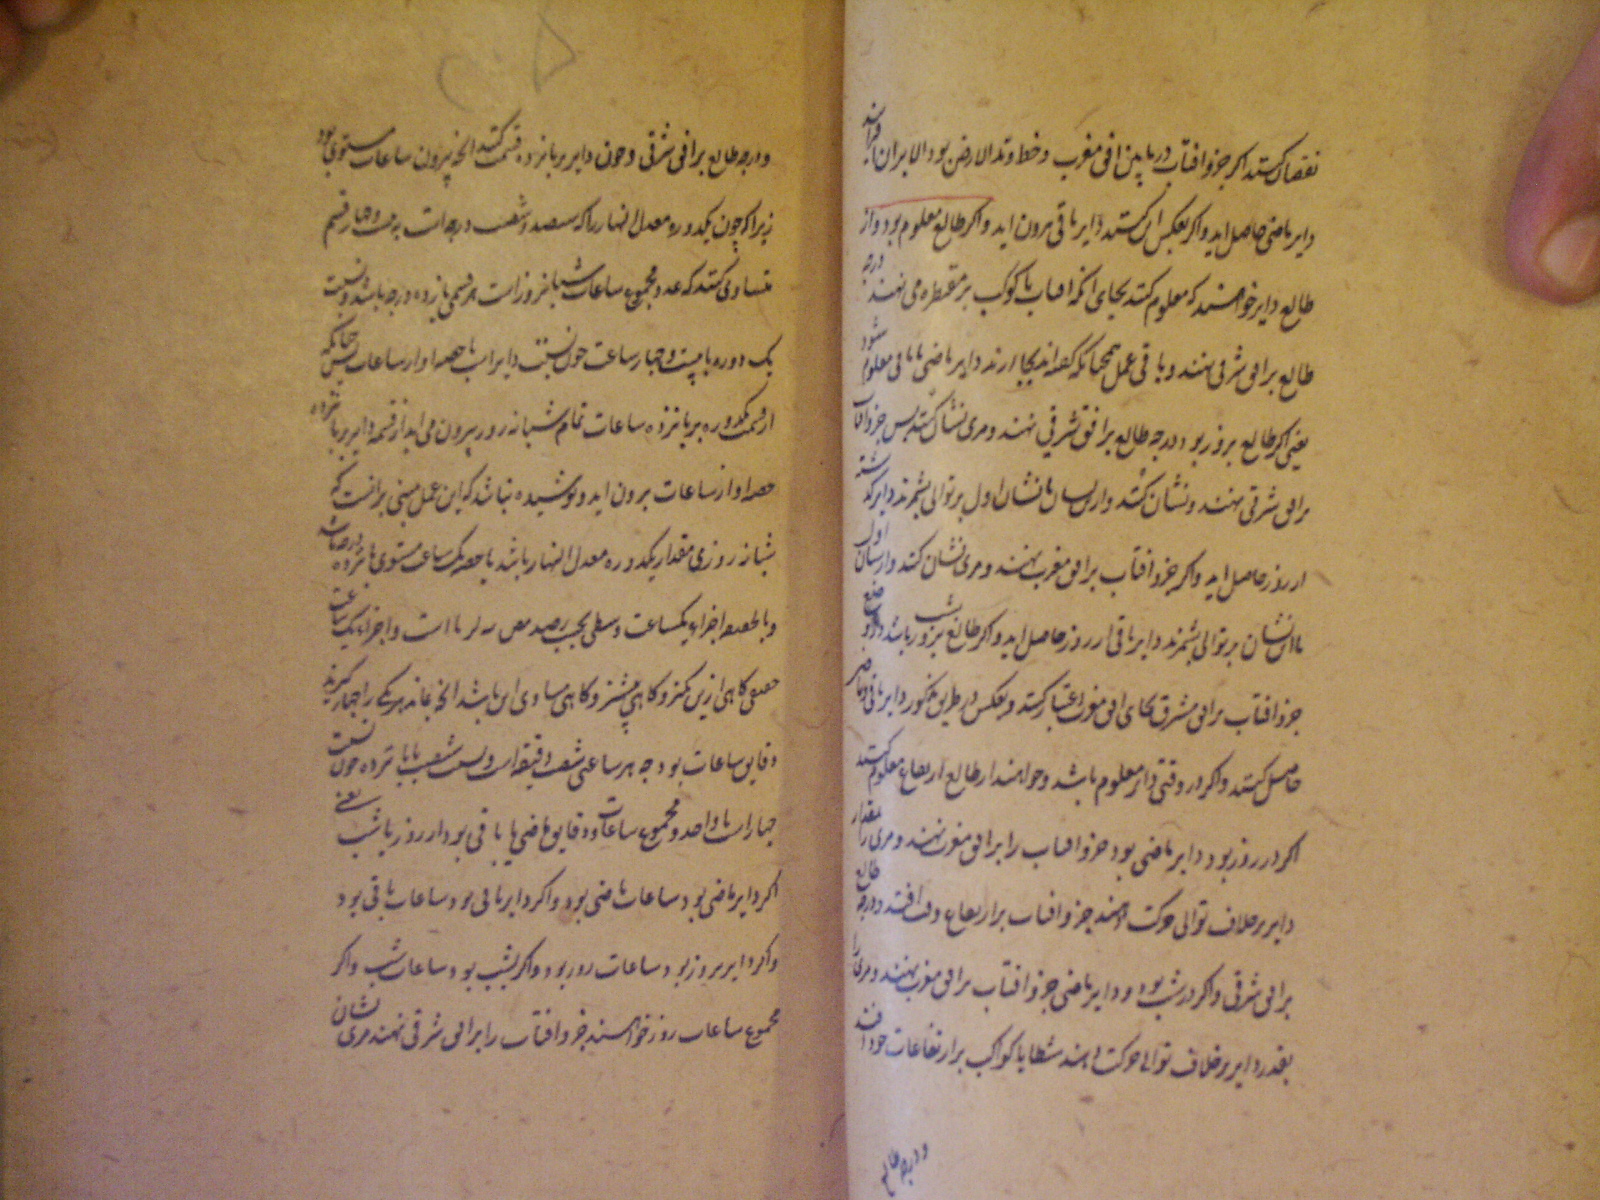 نقصان کنند اکر جزو افتاب در مابین افق مغرب و خط وتد الارض بود والا بران افزایند
دایر ماضی حاصل اید و اکر بعکس این کنند دایر باقی بیرون اید و اکر طالع معلوم بود و از
طالع دایر خواهند که معلوم کنند بجای انکه افتاب یا کوکب بر مقنطره می نهند درجه
طالع بر افق شرقی نهند و باقی عمل همچنانکه کفته اند بجا ارند دایر ماضی یا باقی معلوم شود
یعنی اکر طالع بروز بود درجه طالع بر افق شرقی نهند و مری نشان کنند پس جزو افتاب
بر افق شرقی نهند و نشان کنند و از نشان تا نشان اول بر توالی بشمرند دایر کذشته
از روز حاصل اید و اکر جزو افتاب بر افق مغرب نهند و مری نشان کنند و از نشان اول
تا این نشان بر توالی بشمرند دایر باقی از روز حاصل اید و اکر طالع بشب باشد
جزو افتاب بر افق مشرق بجای افق مغرب اعتبار کنند و بعکس در طریق مذکور دایر باقی و ماضی
حاصل کنند و اکر در وقتی دایر معلوم باشد و خواهند از طالع ارتفاع معلوم کنند
اکر در روز بود و دایر ماضی بود جزو افتاب را بر افق مغرب نهند و مری را بمقدار
دایر بر خلاف توالی حرکت دهند جزو افتاب بر ارتفاع وقت افتد و درجه طالع
بر افق شرقی و اکر در شب بود و دایر ماضی جزو افتاب بر افق مغرب نهند و مری را
بقدر دایر بر خلاف توالی حرکت دهند شظایا کواکب بر ارتفاعات خود افتد
و درجه طالع
و درجه طالع بر افق شرقی و چون دایر بر پانزده قسمت کنند انچه بیرون ساعات مستوی بود
زیرا که چون یکدوره معدل النهار را که سیصد و شصت درجه است به بیست و چهار قسم
متساوی کنند که عدد مجموع ساعات شبانروز است هر قسمی پانزده درجه باشد و نسبت
یک دوره با بیست و چهار ساعت چون نسبت دایر است با حصه او از ساعات پس چنانکه
از قسمت یکدوره بر پانزده ساعات تمام شبانه روز بیرون می اید از قسمة دایر بر پانزده
حصه او از ساعات بیرون اید و پوشیده نباشد که این عمل مبنی برانست که
شبانه روزی مقدار یکدوره معدل النهار باشد یا حصه یکساعت مستوی پانزده درجه باشد
و بالحقیقه اجزاء یکساعت وسطی بحسب رصد است و اجزاء یک ساعت
حقیقی کاهی ازین کمتر و کاهی بیشتر و کاهی مساوی این باشد انچه بماند هر یکی را چهار کیرند
دقایق ساعات بود چه هر ساعتی شصت دقیقه است و نسبت شصت با پانزده چون نسبت
چهار است با واحد و مجموع ساعات و دقایق ماضی یا باقی بود از روز یا شب یعنی
اکر دایر ماضی بود ساعات ماضی بود و اکر دایر باقی بود ساعات باقی بود
و اکر دایر بروز بود ساعات روز بود و اکر بشب بود ساعات شب و اکر
مجموع ساعات روز خواهند جزو افتاب را بر افق شرقی نهند مری نشان